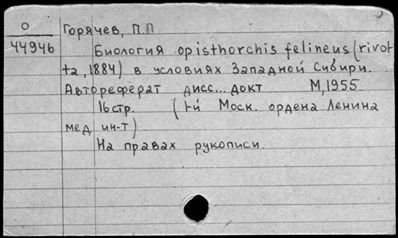 О
44946
Горячев, П.П
Биология opisthorchis felineus (rivol
tta, 1884) в условиях Западной Сибири.
Автореферат дисс... докт М, 1955
16 стр. (1-й Моск. ордена Ленина
мед ин-т)
На правах рукописи.